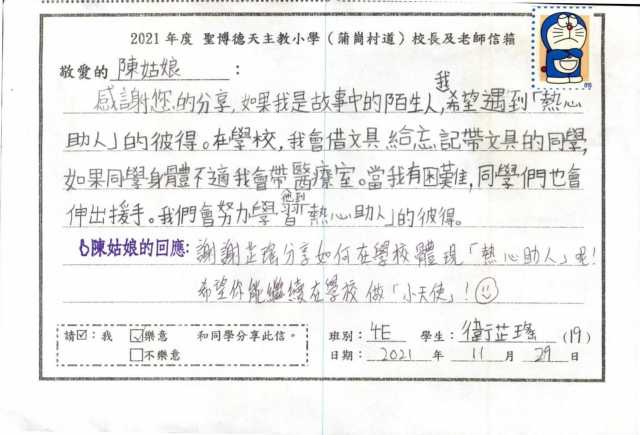 2021年度 聖博德天主教小學（蒲崗村道）校長及老師信箱
敬愛的 陳姑娘：
感謝您的分享,如果我是故事中的陌生人,我希望遇到「熱心
助人」的彼得。在學校,我會借文具給忘記帶文具的同學,
如果同學身體不適我會帶他到醫療室。當我有困難,同學們也會
伸出援手。我們會努力學習「熱心助人」的彼得。
陳姑娘的回應: 謝謝芷瑤分享如何在學校體現「熱心助人」呢!
希望你能繼續在學校做「小天使」!
請☑：我 ☑樂意 和同學分享此信。
□不樂意
班別：4E 學生：衛芷瑤 (19)
日期：2021 年 11 月 29 日